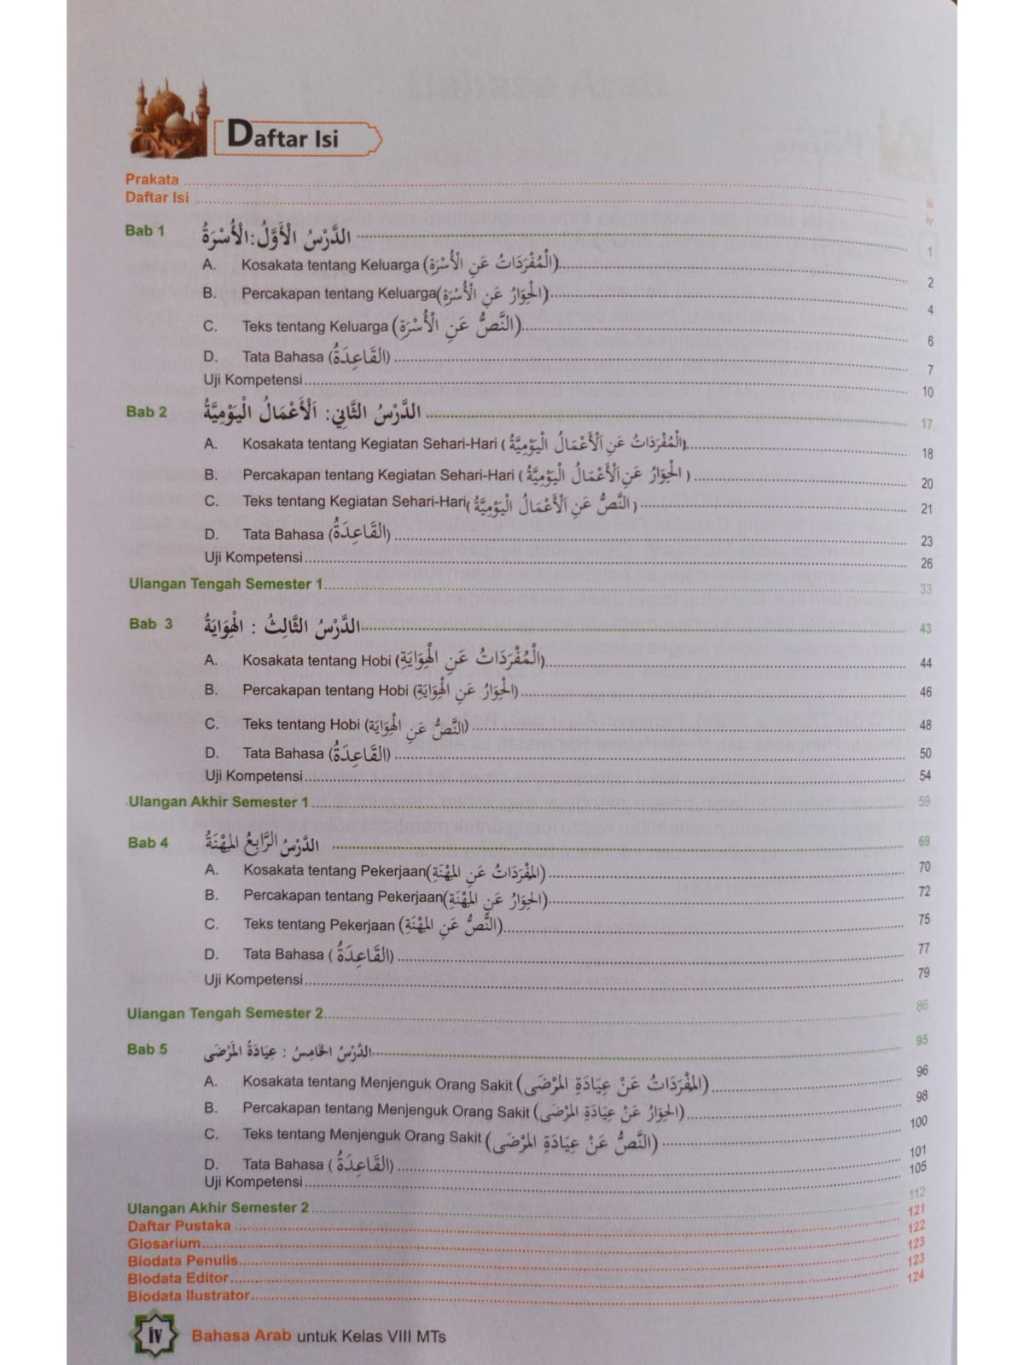 Daftar Isi
Prakata ........ iii
Daftar Isi ........ iv
Bab 1 الدَّرْسُ الْأَوَّلُ:الْأُسْرَةُ ........ 1
A. Kosakata tentang Keluarga (الْمُفْرَدَاتُ عَنِ الْأُسْرَةِ) ........ 2
B. Percakapan tentang Keluarga(الحِوَارُ عَنِ الْأُسْرَةِ) ........ 4
C. Teks tentang Keluarga (النَّصُّ عَنِ الْأُسْرَةِ) ........ 6
D. Tata Bahasa (القَاعِدَةُ) ........ 7
Uji Kompetensi ........ 10
Bab 2 الدَّرْسُ الثَّانِي: اَلْأَعْمَالُ الْيَوْمِيَّةُ ........ 17
A. Kosakata tentang Kegiatan Sehari-Hari (الْمُفْرَدَاتُ عَنِ اَلْأَعْمَالُ الْيَوْمِيَّةُ) ........ 18
B. Percakapan tentang Kegiatan Sehari-Hari (الحِوَارُ عَنِ اَلْأَعْمَالُ الْيَوْمِيَّةُ) ........ 20
C. Teks tentang Kegiatan Sehari-Hari(النَّصُّ عَنِ اَلْأَعْمَالُ الْيَوْمِيَّةُ) ........ 21
D. Tata Bahasa (القَاعِدَةُ) ........ 23
Uji Kompetensi ........ 26
Ulangan Tengah Semester 1 ........ 33
Bab 3 الدَّرْسُ الثَّالِثُ : الْهِوَايَةُ ........ 43
A. Kosakata tentang Hobi (الْمُفْرَدَاتُ عَنِ الْهِوَايَةِ) ........ 44
B. Percakapan tentang Hobi (الحِوَارُ عَنِ الْهِوَايَةِ) ........ 46
C. Teks tentang Hobi (النَّصُّ عَنِ الْهِوَايَةِ) ........ 48
D. Tata Bahasa (القَاعِدَةُ) ........ 50
Uji Kompetensi ........ 54
Ulangan Akhir Semester 1 ........ 59
Bab 4 الدَّرْسُ الرَّابِعُ المِهْنَةُ ........ 69
A. Kosakata tentang Pekerjaan(المُفْرَدَاتُ عَنِ المِهْنَةِ) ........ 70
B. Percakapan tentang Pekerjaan(الحِوَارُ عَنِ المِهْنَةِ) ........ 72
C. Teks tentang Pekerjaan (النَّصُّ عَنِ المِهْنَةِ) ........ 75
D. Tata Bahasa (القَاعِدَةُ) ........ 77
Uji Kompetensi ........ 79
Ulangan Tengah Semester 2 ........ 86
Bab 5 الدَّرْسُ الخَامِسُ : عِيَادَةُ المَرْضَى ........ 95
A. Kosakata tentang Menjenguk Orang Sakit (المُفْرَدَاتُ عَنْ عِيَادَةِ المَرْضَى) ........ 96
B. Percakapan tentang Menjenguk Orang Sakit (الحِوَارُ عَنْ عِيَادَةِ المَرْضَى) ........ 98
C. Teks tentang Menjenguk Orang Sakit (النَّصُّ عَنْ عِيَادَةِ المَرْضَى) ........ 100
D. Tata Bahasa (القَاعِدَةُ) ........ 101
Uji Kompetensi ........ 105
Ulangan Akhir Semester 2 ........ 112
Daftar Pustaka ........ 121
Glosarium ........ 122
Biodata Penulis ........ 123
Biodata Editor ........ 123
Biodata Ilustrator ........ 124
iv Bahasa Arab untuk Kelas VIII MTs